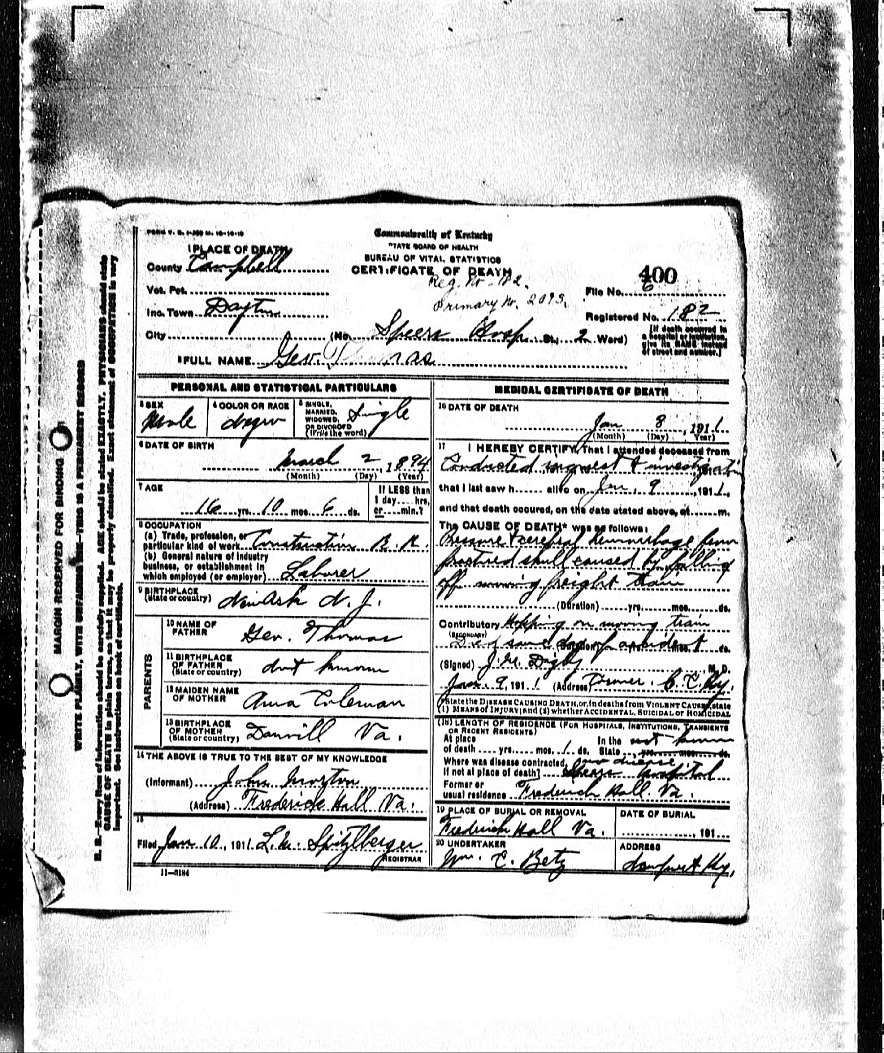 FORM V. S. 1-
Commonwealth of Kentucky
STATE BOARD OF HEALTH
BUREAU OF VITAL STATISTICS
CERTIFICATE OF DEATH
1 PLACE OF DEATH
County Campbell
Vot. Pct.
Inc. Town Dayton
City (No. Speers Hosp. St., 2 Ward)
Reg. No. 112.
Primary No. 2093.
400
File No. 6
Registered No. 182
[If death occurred in a hospital or institution, give its NAME instead of street and number.]
2 FULL NAME Geo. Thomas
PERSONAL AND STATISTICAL PARTICULARS
3 SEX Male
4 COLOR OR RACE Negro
5 SINGLE, MARRIED, WIDOWED, OR DIVORCED (Write the word) Single
6 DATE OF BIRTH
March 2, 1894
(Month) (Day) (Year)
7 AGE
16 yrs. 10 mos. 6 ds.
If LESS than 1 day.... hrs. or.... min.?
8 OCCUPATION
(a) Trade, profession, or particular kind of work Construction R. R.
(b) General nature of industry business, or establishment in which employed (or employer) Laborer
9 BIRTHPLACE (State or country) N. J.
PARENTS
10 NAME OF FATHER Geo. Thomas
11 BIRTHPLACE OF FATHER (State or country) dont know
12 MAIDEN NAME OF MOTHER Anna Coleman
13 BIRTHPLACE OF MOTHER (State or country) Danvill Va.
14 THE ABOVE IS TRUE TO THE BEST OF MY KNOWLEDGE
(Informant) John
(Address) Frederick Hall Va.
15
Filed Jan 10, 1911 L. M. Spitzlberger
REGISTRAR
11-3184
MEDICAL CERTIFICATE OF DEATH
16 DATE OF DEATH
Jan 8, 1911
(Month) (Day) (Year)
17 I HEREBY CERTIFY, That I attended deceased from
Conducted inquest & investigation
that I last saw h.... alive on Jan. 9, 1911,
and that death occured, on the date stated above, at....m.
The CAUSE OF DEATH* was as follows:
cerebral hemorrhage from
fractured skull caused by falling
off moving freight train
(Duration)....yrs....mos....ds.
Contributory Hopping on moving train
(SECONDARY)
same day accident
(Signed) J. M. Digby M. D.
Jan. 9, 1911 (Address) Coroner C. C. Ky.
*State the DISEASE CAUSING DEATH, or, in deaths from VIOLENT CAUSES, state
(1) MEANS OF INJURY; and (2) whether ACCIDENTAL, SUICIDAL or HOMICIDAL
(18) LENGTH OF RESIDENCE (FOR HOSPITALS, INSTITUTIONS, TRANSIENTS OR RECENT RESIDENTS)
At place of death....yrs....mos. 1 ds. In the State not known
Where was disease contracted, if not at place of death? no disease Speers Hospital
Former or usual residence Frederick Hall Va.
19 PLACE OF BURIAL OR REMOVAL
Frederick Hall Va.
DATE OF BURIAL
...., 191...
20 UNDERTAKER
Wm. C. Betz
ADDRESS
Newport Ky.
MARGIN RESERVED FOR BINDING
WRITE PLAINLY, WITH UNFADING INK—THIS IS A PERMANENT RECORD
N. B.—Every item of information should be carefully supplied. AGE should be stated EXACTLY. PHYSICIANS should state
CAUSE OF DEATH in plain terms, so that it may be properly classified. Exact statement of OCCUPATION is very
important. See instructions on back of certificate.